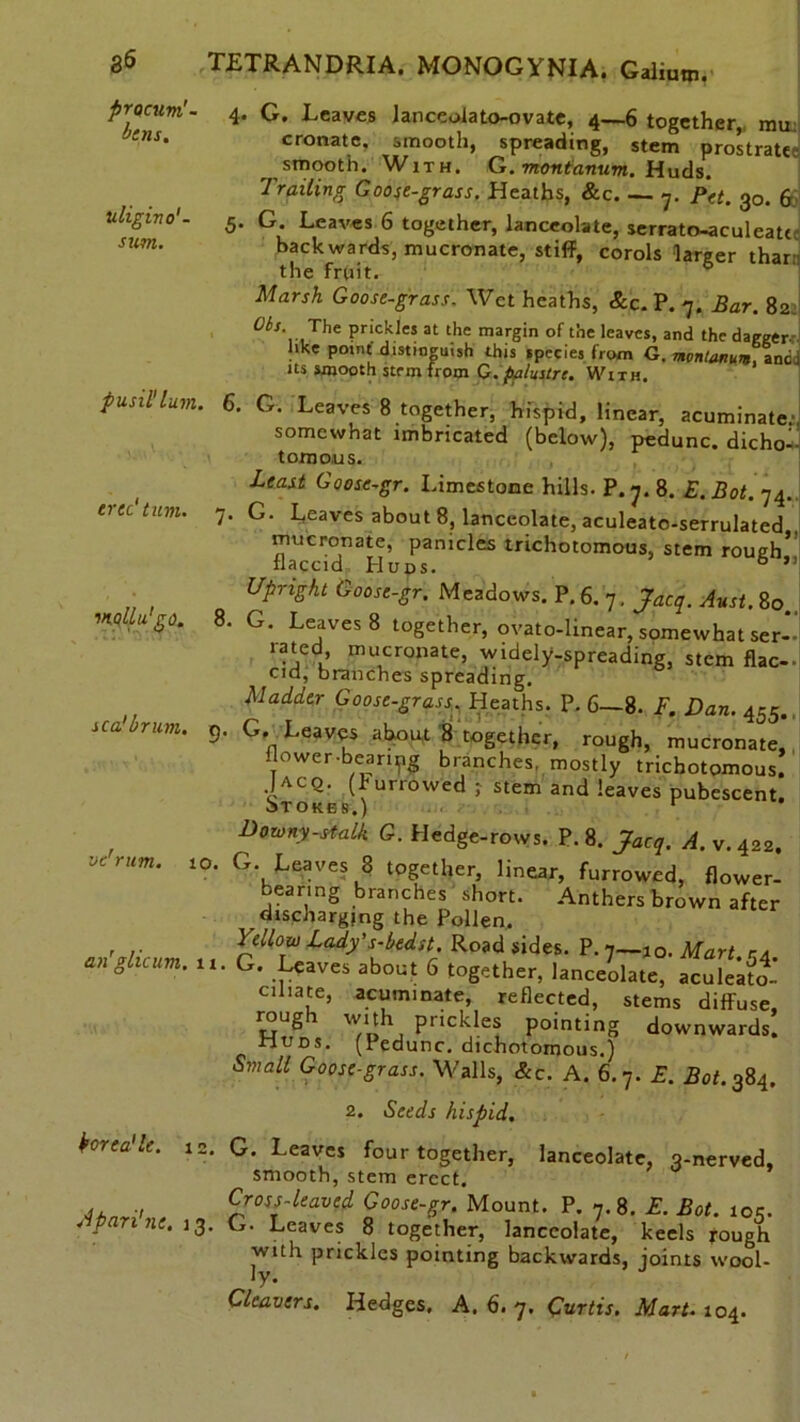 36 TETRANDRIA. MONOGYNIA. Galium.
procum'- 4. G. Leaves lanceolato-ovate, 4—6 together, mu
bens. cronate, smooth, spreading, stem prostrate
smooth. WITH. G. montanum. Huds.
Trailing Goose-grass. Heaths, &c. — 7. Pet. 30. 6
uligino'- 5. G. Leaves 6 together, lanceolate, serrato-aculeate
sum. backwards, mucronate, stiff, corols larger than
the fruit.
Marsh Goose-grass. Wet heaths, &c. P. 7. Bar. 82
Obs. The prickles at the margin of the leaves, and the dagger
like point distinguish this species from G. montanum, and
its smooth stem from G. palustre. WITH.
pusil'lum. 6. G. Leaves 8 together, hispid, linear, acuminate,
somewhat imbricated (below), pedunc. dicho-
tomous.
Least Goose-gr. Limestone hills. P. 7. 8. E. Bot. 74.
erec'tum. 7. G. Leaves about 8, lanceolate, aculeato-serrulated,
mucronate, panicles trichotomous, stem rough,
flaccid HUDS.
Upright Goose-gr. Meadows. P. 6. 7. Jacq. Aust. 80.
mollu'go. 8. G. Leaves 8 together, ovato-linear, somewhat ser-
rated, mucronate, widely-spreading, stem flac-
cid, branches spreading.
Madder Goose-grass. Heaths. P. 6—8. F. Dan. 455.
sca'brum. 9. G. Leaves about 8 together, rough, mucronate,
flower-bearing branches, mostly trichotomous.
JACQ. (Furrowed; stem and leaves pubescent.
STOKES.)
Downy-stalk G. Hedge-rows. P. 8. Jacq. A. v. 422.
ve'rum. 10. G. Leaves 8 together, linear, furrowed, flower-
bearing branches short. Anthers brown after
discharging the Pollen.
Yellow Lady's-bedst. Road sides. P. 7—10. Mart. 54.
an'glicum. 11. G. Leaves about 6 together, lanceolate, aculeato-
ciliate, acuminate, reflected, stems diffuse,
rough with prickles pointing downwards.
HUDS. (Pedunc. dichotomous.)
Small Goose-grass. Walls, &c. A. 6. 7. E. Bot. 384.
2. Seeds hispid.
borea'le. 12. G. Leaves four together, lanceolate, 3-nerved,
smooth, stem erect.
Cross-leaved Goose-gr. Mount. P. 7. 8. E. Bot. 105.
Apari'ne. 13. G. Leaves 8 together, lanceolate, keels rough
with prickles pointing backwards, joints wool-
ly.
Cleavers. Hedges. A. 6. 7. Curtis. Mart. 104.